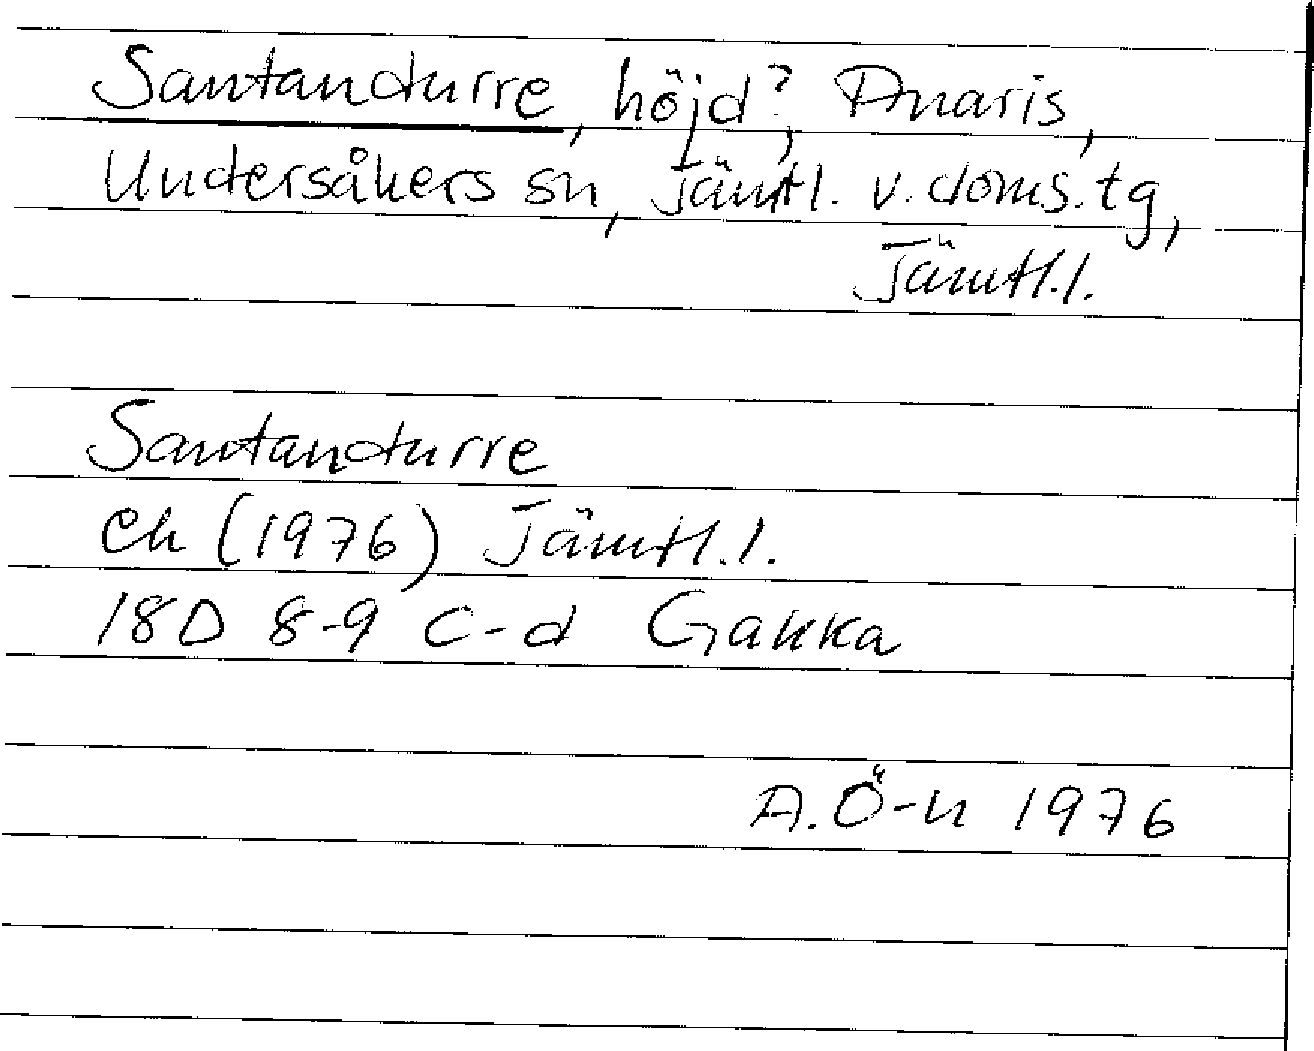 Santandurre, höjd?, Anaris,
Undersåkers sn, Jämtl. v. doms. tg,
Jämtl. l.
Santandurre
ek (1976) Jämtl. l.
18D 8-9 c-d Gakka
A. Ö-n 1976